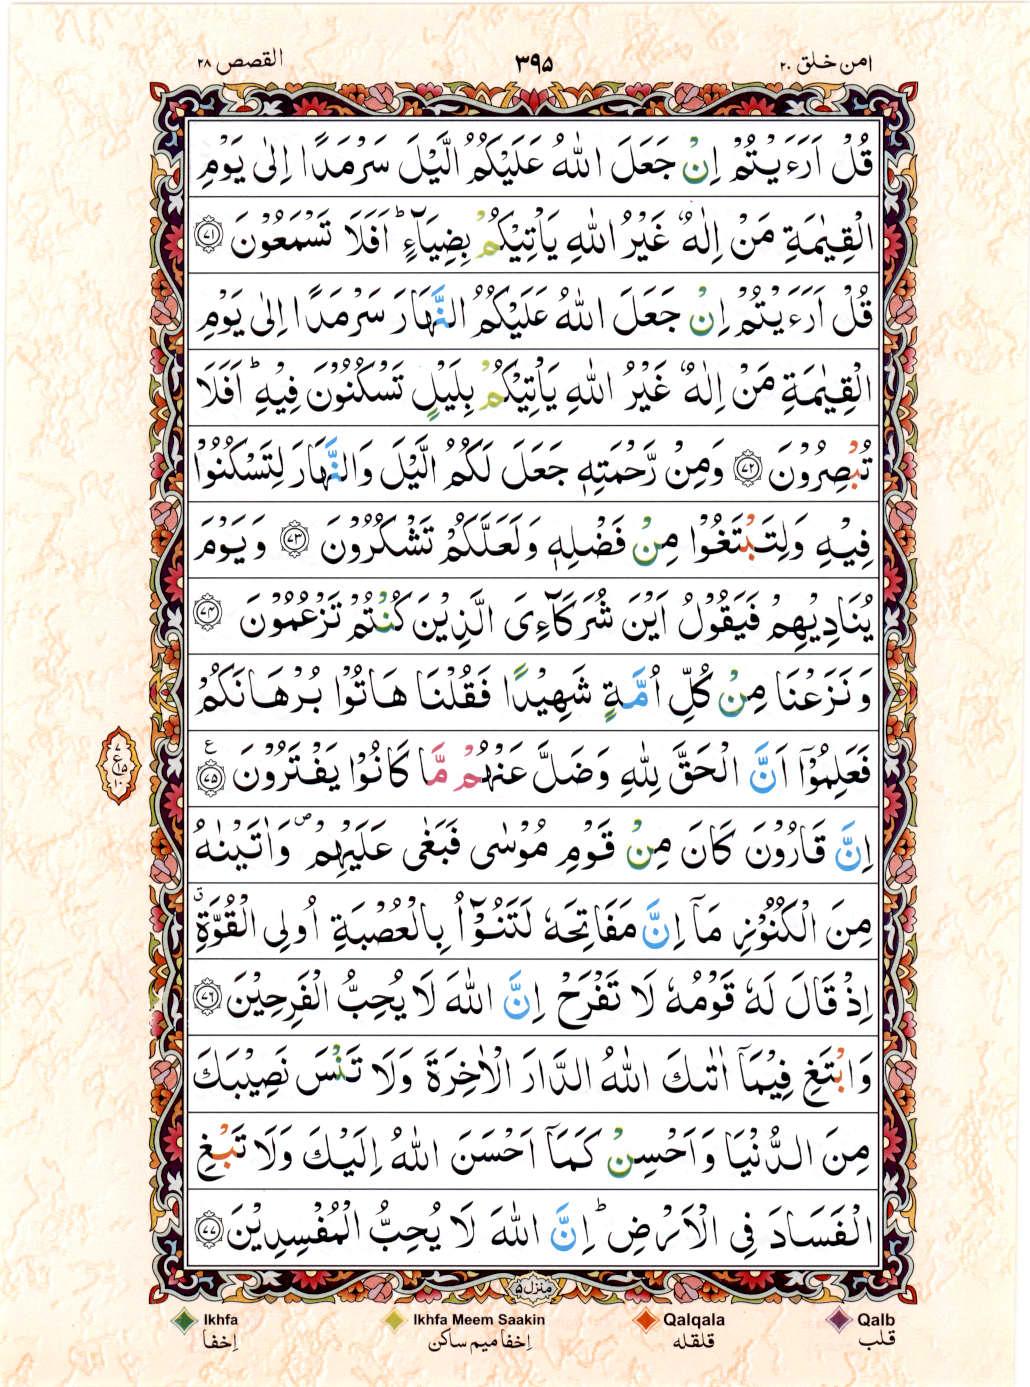 امن خلق ۲۰
۳۹۵
القصص ۲۸
قُلْ اَرَءَيْتُمْ اِنْ جَعَلَ اللّٰهُ عَلَيْكُمُ الَّيْلَ سَرْمَدًا اِلٰى يَوْمِ
الْقِيٰمَةِ مَنْ اِلٰهٌ غَيْرُ اللّٰهِ يَاْتِيْكُمْ بِضِيَآءٍ ؕ اَفَلَا تَسْمَعُوْنَ ﴿۷۱﴾
قُلْ اَرَءَيْتُمْ اِنْ جَعَلَ اللّٰهُ عَلَيْكُمُ النَّهَارَ سَرْمَدًا اِلٰى يَوْمِ
الْقِيٰمَةِ مَنْ اِلٰهٌ غَيْرُ اللّٰهِ يَاْتِيْكُمْ بِلَيْلٍ تَسْكُنُوْنَ فِيْهِ ؕ اَفَلَا
تُبْصِرُوْنَ ﴿۷۲﴾ وَمِنْ رَّحْمَتِهٖ جَعَلَ لَكُمُ الَّيْلَ وَالنَّهَارَ لِتَسْكُنُوْا
فِيْهِ وَلِتَبْتَغُوْا مِنْ فَضْلِهٖ وَلَعَلَّكُمْ تَشْكُرُوْنَ ﴿۷۳﴾ وَيَوْمَ
يُنَادِيْهِمْ فَيَقُوْلُ اَيْنَ شُرَكَآءِىَ الَّذِيْنَ كُنْتُمْ تَزْعُمُوْنَ ﴿۷۴﴾
وَنَزَعْنَا مِنْ كُلِّ اُمَّةٍ شَهِيْدًا فَقُلْنَا هَاتُوْا بُرْهَانَكُمْ
فَعَلِمُوْٓا اَنَّ الْحَقَّ لِلّٰهِ وَضَلَّ عَنْهُمْ مَّا كَانُوْا يَفْتَرُوْنَ ﴿۷۵﴾ ع
۷
ع ۱۵
۱۰
اِنَّ قَارُوْنَ كَانَ مِنْ قَوْمِ مُوْسٰى فَبَغٰى عَلَيْهِمْ ۪ وَاٰتَيْنٰهُ
مِنَ الْكُنُوْزِ مَآ اِنَّ مَفَاتِحَهٗ لَتَنُوْٓاُ بِالْعُصْبَةِ اُولِى الْقُوَّةِ ۗ
اِذْ قَالَ لَهٗ قَوْمُهٗ لَا تَفْرَحْ اِنَّ اللّٰهَ لَا يُحِبُّ الْفَرِحِيْنَ ﴿۷۶﴾
وَابْتَغِ فِيْمَآ اٰتٰىكَ اللّٰهُ الدَّارَ الْاٰخِرَةَ وَلَا تَنْسَ نَصِيْبَكَ
مِنَ الدُّنْيَا وَاَحْسِنْ كَمَآ اَحْسَنَ اللّٰهُ اِلَيْكَ وَلَا تَبْغِ
الْفَسَادَ فِى الْاَرْضِ ؕ اِنَّ اللّٰهَ لَا يُحِبُّ الْمُفْسِدِيْنَ ﴿۷۷﴾
منزل ۵
Ikhfa
اِخفا
Ikhfa Meem Saakin
اِخفا میم ساکن
Qalqala
قلقله
Qalb
قلب